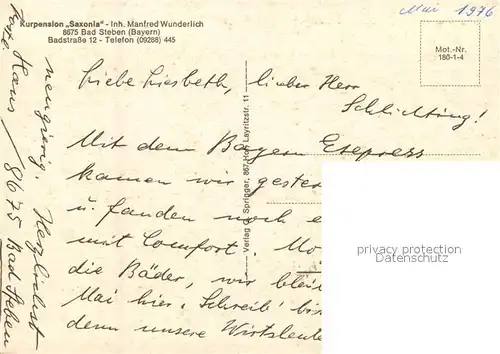 Kurpension „Saxonia“ - Inh. Manfred Wunderlich
8675 Bad Steben (Bayern)
Badstraße 12 - Telefon (09288) 445
Mai 1976
Mot.-Nr.
180-1-4
Liebe Liesbeth, lieber Herr
Schlichting!
Mit dem Bayern Expreß
kamen wir gester
u. fanden noch e
mit Comfort. Mo
die Bäder, wir blei
Mai hier. Schreib' bi
denn unsere Wirtsleute
neugierig. Herzlichst
Hans / 8675 Bad Steben
Verlag G. Springer, 867 Hof, Layritzstr. 11
privacy protection
Datenschutz